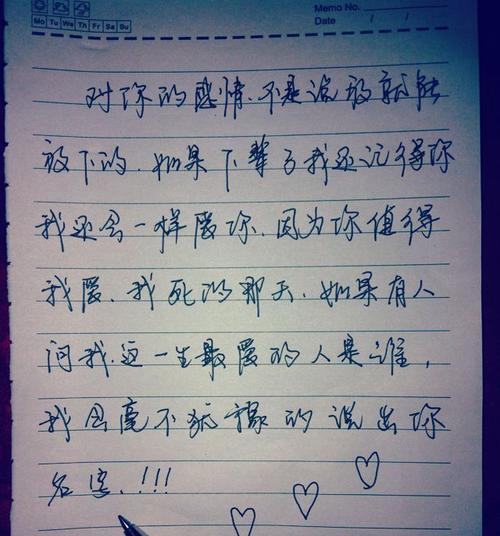 Memo No.
Mo Tu We Th Fr Sa Su
Date / /
对你的感情.不是说放就能
放下的.如果下辈子我还记得你
我还会一样爱你.因为你值得
我爱.我死的那天.如果有人
问我.这一生最爱的人是谁,
我会毫不犹豫的说出你
名字.!!!